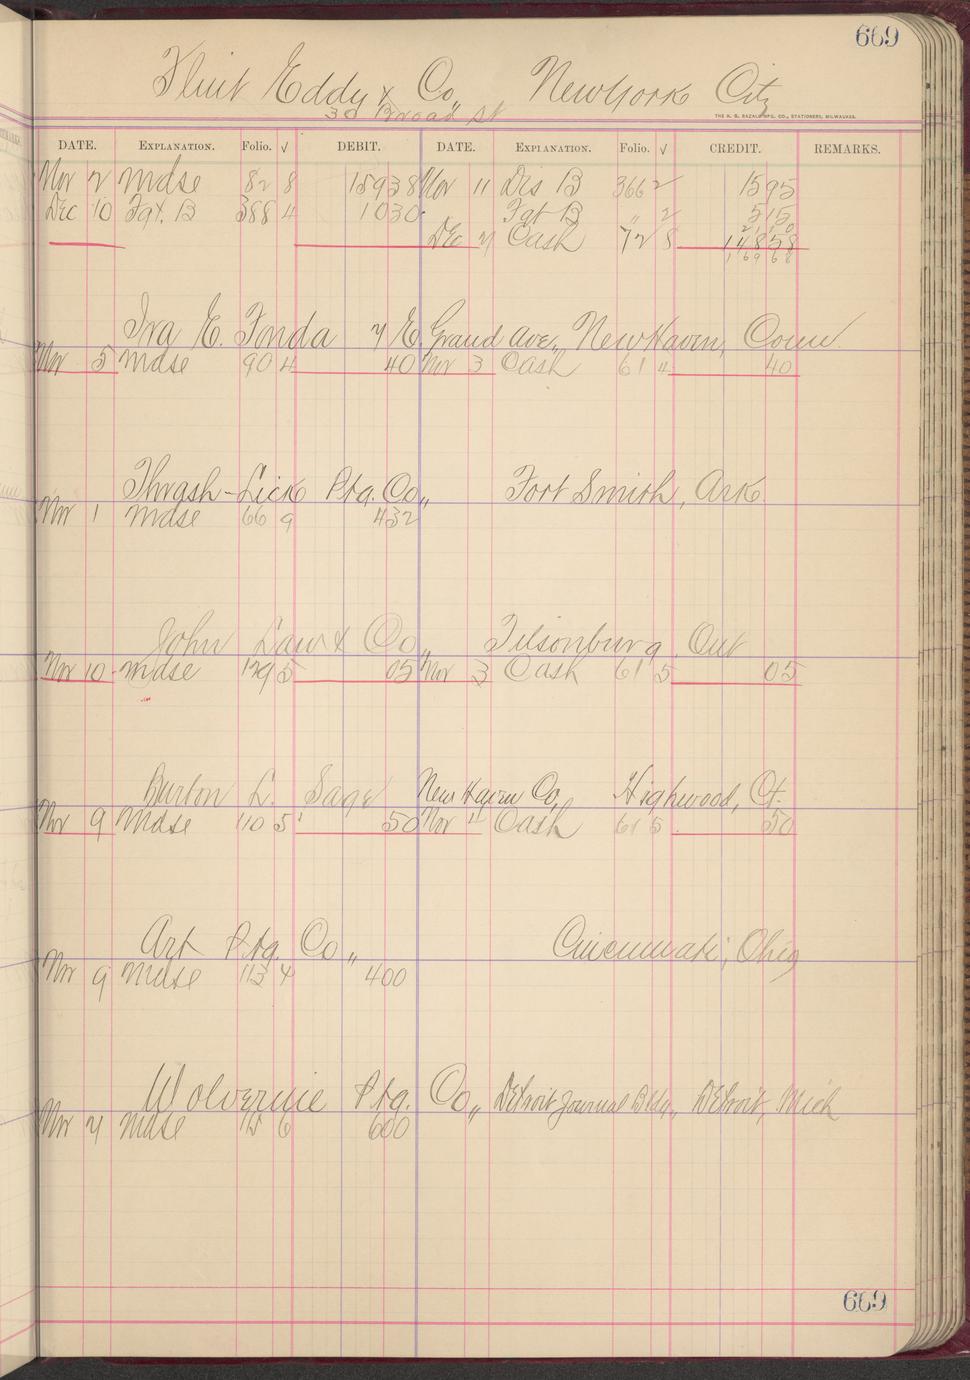 669
Flint Eddy & Co,, New York City
30 Broad St
THE H. G. RAZALL MFG. CO., STATIONERS, MILWAUKEE.
DATE. EXPLANATION. Folio. √ DEBIT. DATE. EXPLANATION. Folio. √ CREDIT. REMARKS.
Nov 2 Mdse 82 8 15938 Nov 11 Dis B 366 2 1595
Dec 10 Fgt. B 388 4 1030 Fgt B " 2 515
Dec 7 Cash 72 8 14858
16968
Ira E. Fonda 7 E. Grand Ave,, New Haven, Conn.
Nov 5 Mdse 90 4 40 Nov 3 Cash 61 4 40
Thrash-Lick Ptg. Co,, Fort Smith, Ark
Nov 1 Mdse 66 9 432
John Law & Co,, Tilsonburg Ont
Nov 10 Mdse 129 5 05 Nov 3 Cash 61 5 05
Burton L. Sage New Haven Co, Highwood, Ct.
Nov 9 Mdse 110 5 50 Nov 11 Cash 61 5 50
Art Ptg. Co,, Cincinnati, Ohio
Nov 9 Mdse 113 4 400
Wolverine Ptg. Co,, Detroit Journal Bldg,, Detroit, Mich
Nov 7 Mdse 15 6 600
669